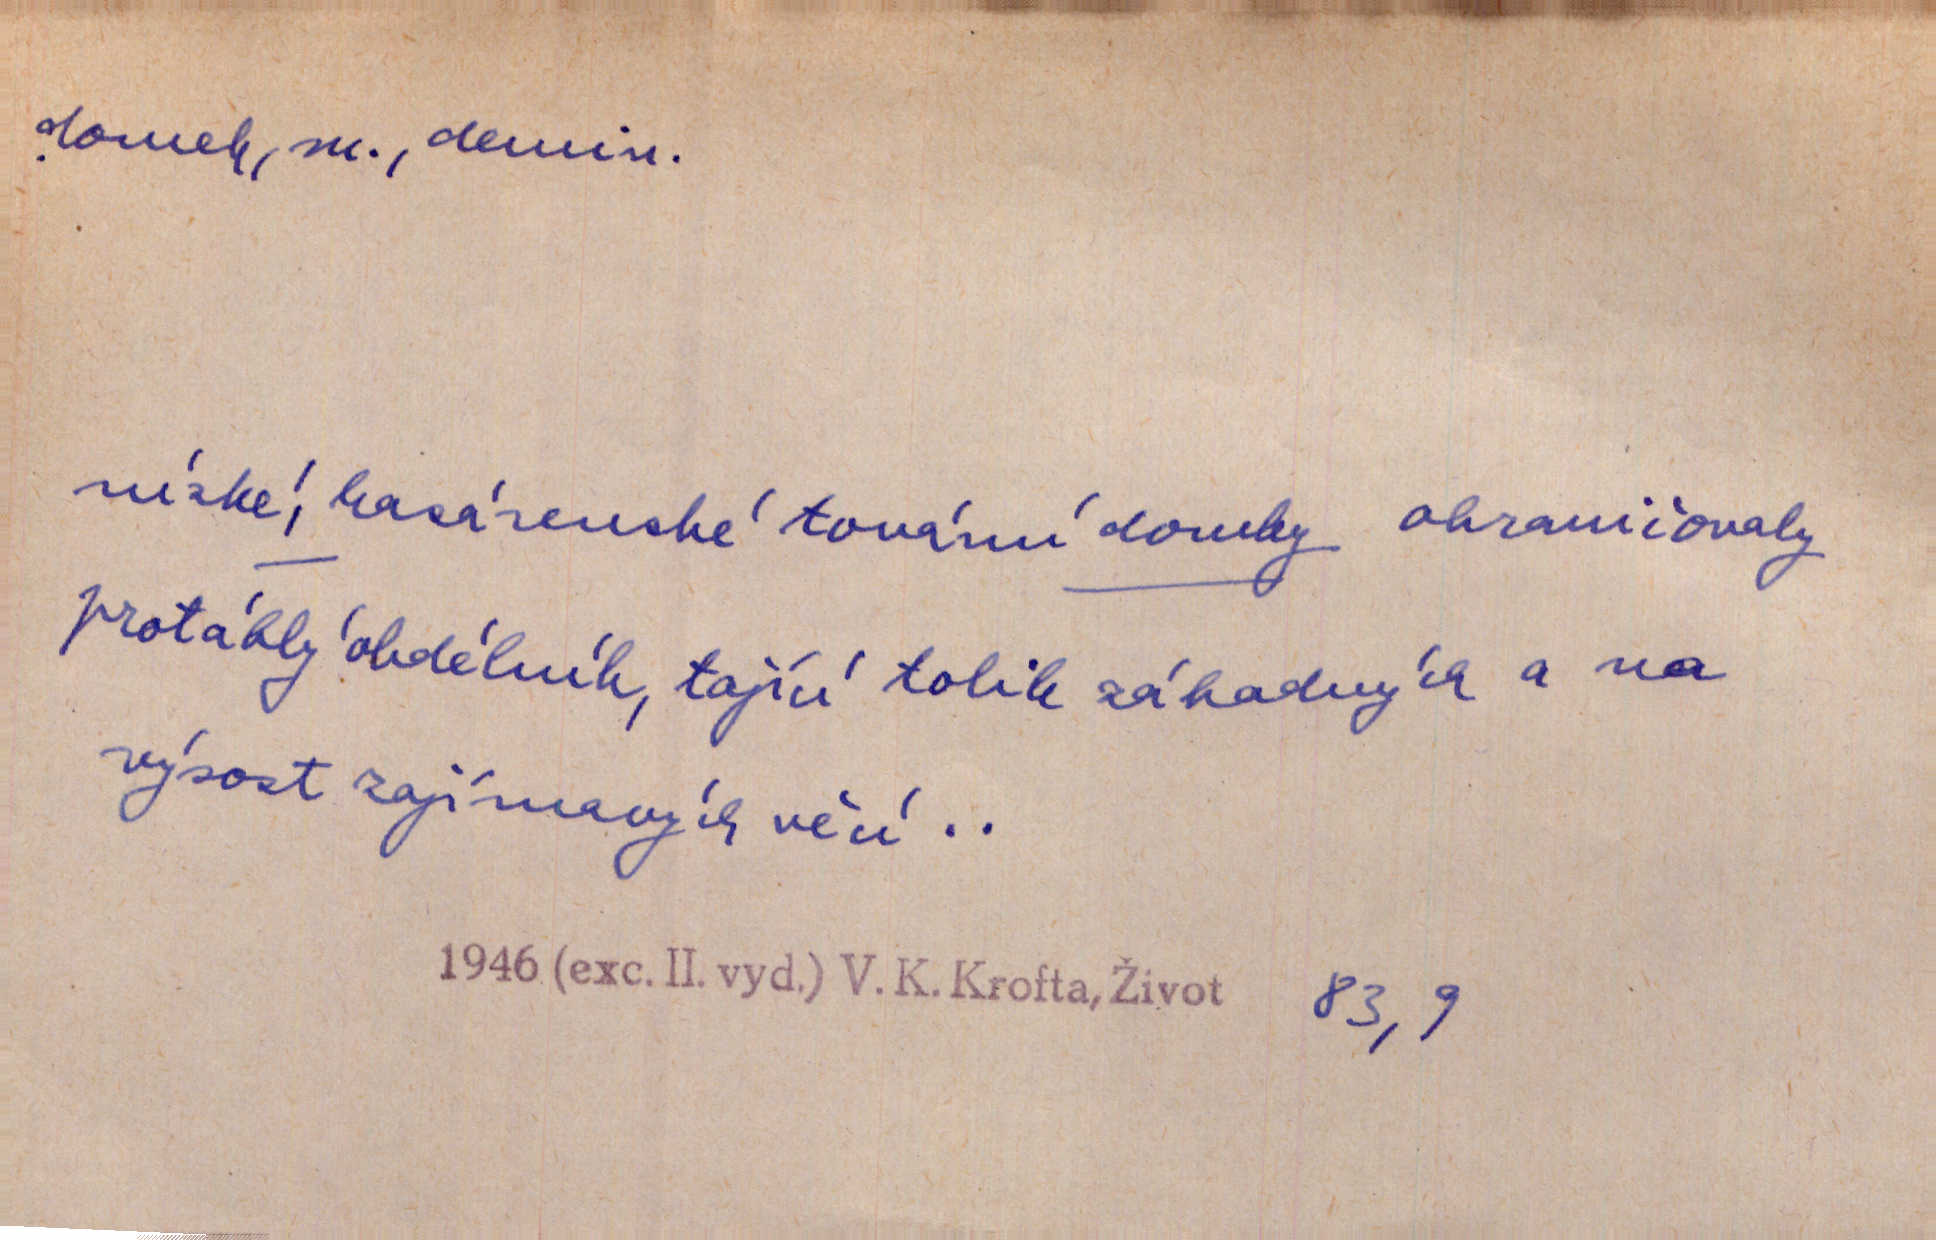 domek, m., demin.
nízké, kasárenské tovární domky ohraničovaly
protáhlý obdélník, tající tolik záhadných a na
výsost zajímavých věcí..
1946 (exc. II. vyd.) V. K. Krofta, Život 83,9